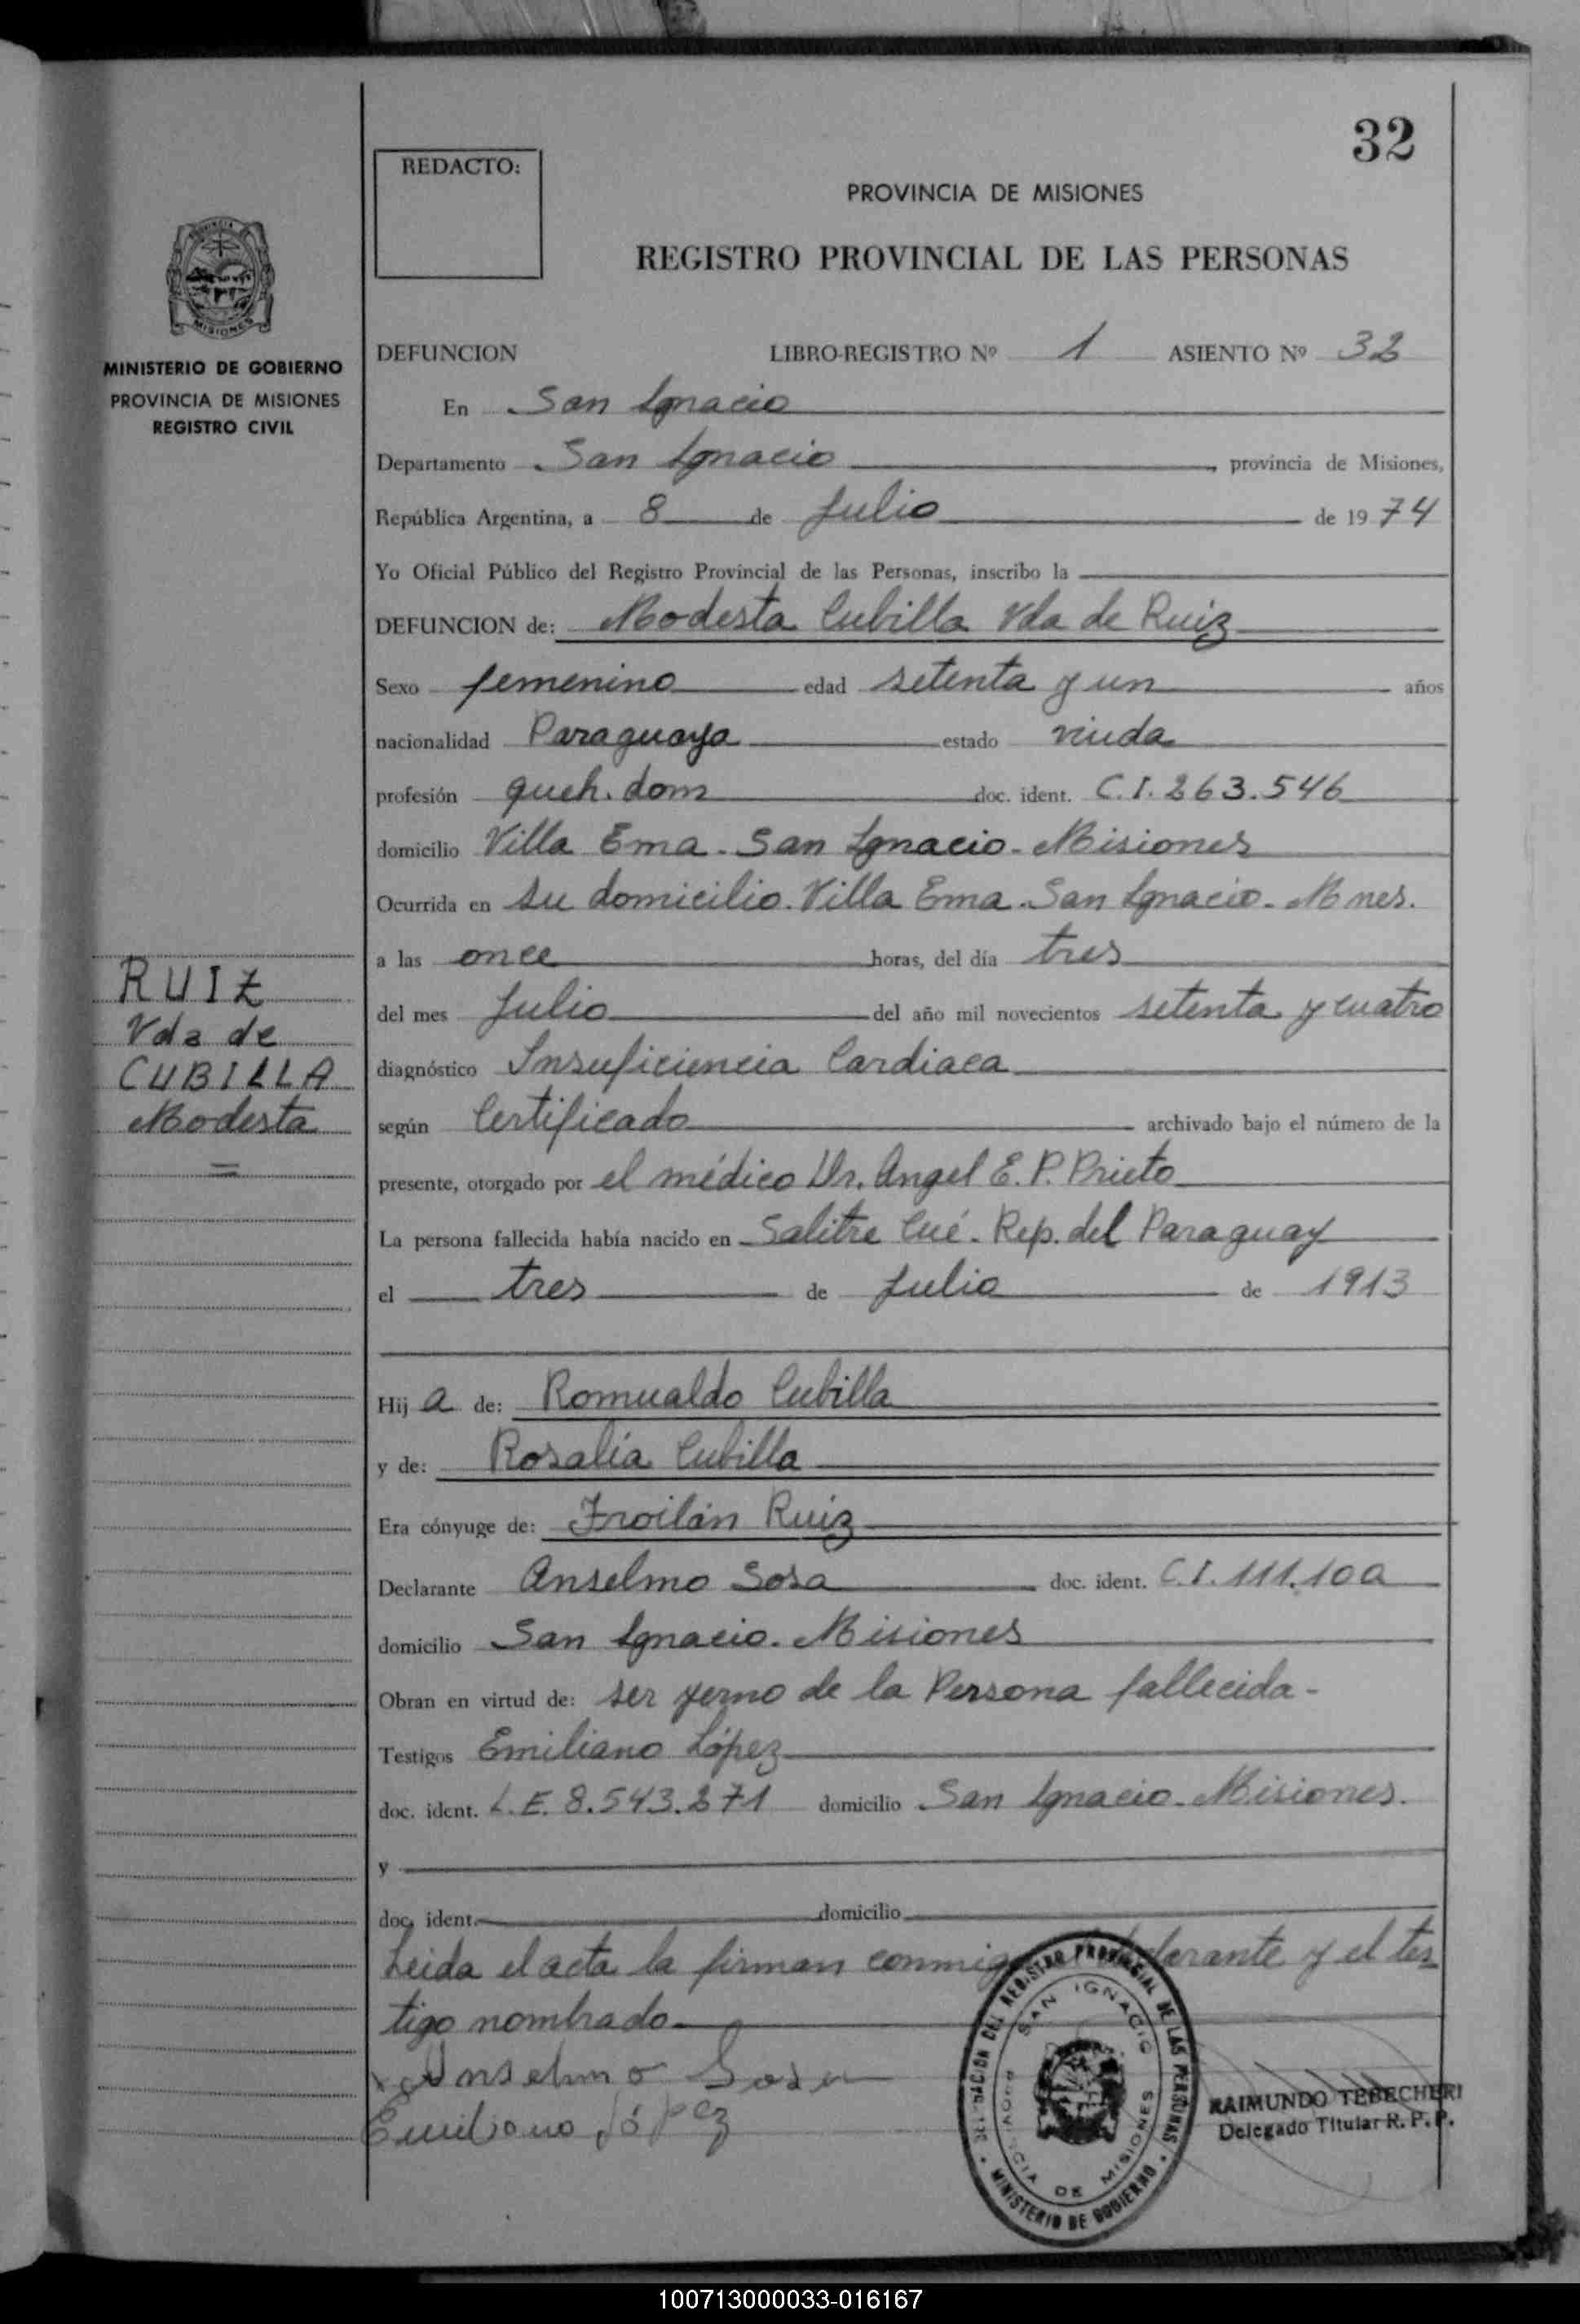 32
REDACTO:
PROVINCIA DE MISIONES
REGISTRO PROVINCIAL DE LAS PERSONAS
MISIONES
MINISTERIO DE GOBIERNO
PROVINCIA DE MISIONES
REGISTRO CIVIL
DEFUNCION LIBRO-REGISTRO Nº 1 ASIENTO Nº 32
En San Ignacio
Departamento San Ignacio, provincia de Misiones,
República Argentina, a 8 de Julio de 1974
Yo Oficial Público del Registro Provincial de las Personas, inscribo la
DEFUNCION de: Modesta Cubilla Vda de Ruiz
Sexo femenino edad setenta y un años
nacionalidad Paraguaya estado viuda
profesión queh. dom doc. ident. C.I. 263.546
domicilio Villa Ema - San Ignacio - Misiones
Ocurrida en su domicilio. Villa Ema - San Ignacio - Mnes.
a las once horas, del día tres
del mes Julio del año mil novecientos setenta y cuatro
diagnóstico Insuficiencia Cardiaca
según Certificado archivado bajo el número de la
presente, otorgado por el médico Dr. Angel E. P. Prieto
La persona fallecida había nacido en Salitre Cué - Rep. del Paraguay
el tres de Julio de 1913
RUIZ
Vda de
CUBILLA
Modesta
=
Hija de: Romualdo Cubilla
y de: Rosalía Cubilla
Era cónyuge de: Froilán Ruiz
Declarante Anselmo Sosa doc. ident. C.I. 111.10
domicilio San Ignacio - Misiones
Obran en virtud de: ser yerno de la Persona fallecida -
Testigos Emiliano López
doc. ident. L.E. 8.543.271 domicilio San Ignacio - Misiones.
y
doc. ident. domicilio
Leida el acta la firman conmigo el declarante y el tes
tigo nombrado.
Anselmo Sosa
Emiliano López
DELEGACION DEL REGISTRO PROVINCIAL DE LAS PERSONAS
SAN IGNACIO
PROVINCIA DE MISIONES
MINISTERIO DE GOBIERNO
RAIMUNDO TEBECHERI
Delegado Titular R. P. P.
100713000033-016167